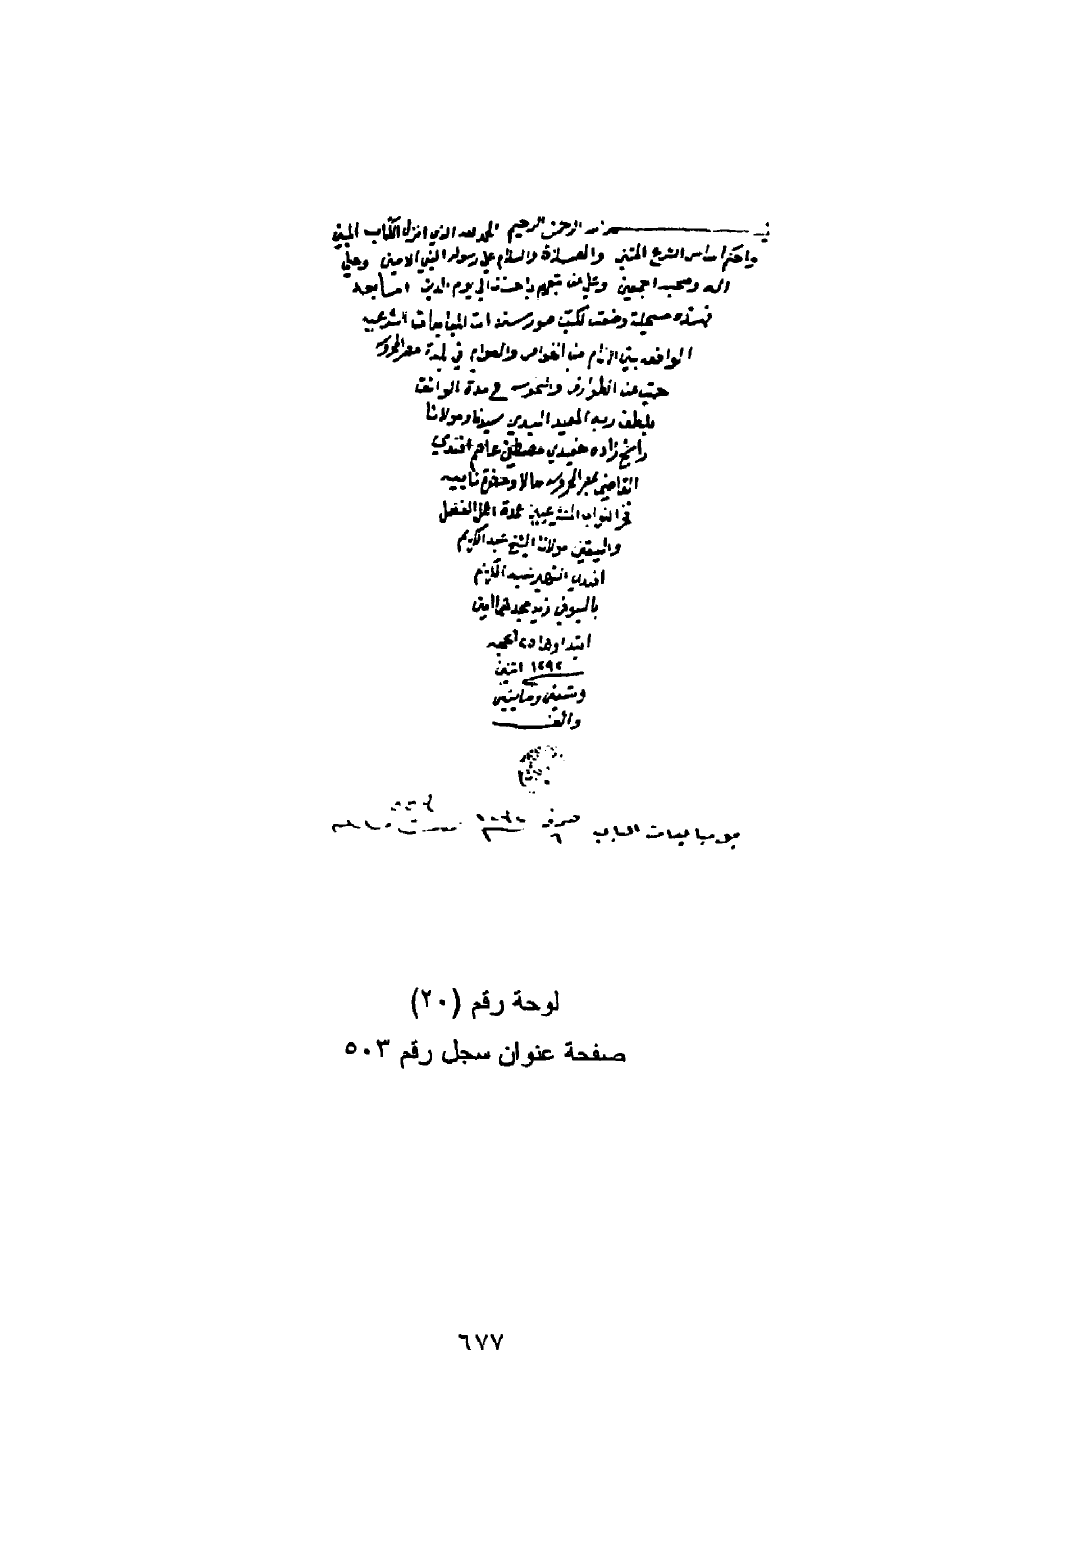 بسم الله الرحمن الرحيم الحمد لله الذي انزل الكتاب المبين
واحكم اساس الشرع المتين والصلاة والسلام على رسوله النبي الامين وعلى
اله وصحبه اجمعين وعلى من تبعهم باحسان الى يوم الدين اما بعد
فهذه سجلة وضعت لكتب صور سندات المبايعات الشرعيه
الواقعه بين الانام من الخواص والعوام في بلدة مصر المحروسه
حميت عن الطوارق والنحوسه في مدة الواثق
بلطف ربه المعيد المبدي سيدنا ومولانا
زاده حفيدي مصطفى عاصم افندي
القاضي بمصر المحروسه حالا وحضرة نايبه
فخر النواب المتشرعين عمدة اهل الفضل
واليقين مولانا الشيخ عبد الكريم
افندي الشهير عبد الكرام
زيد مجدهما امين
ابتداوها ٢٥ الحجه
١٢٩٢ اثنين
وتسعين ومايتين
والف
صرف
لوحة رقم (٢٠)
صفحة عنوان سجل رقم ٥٠٣
٦٧٧